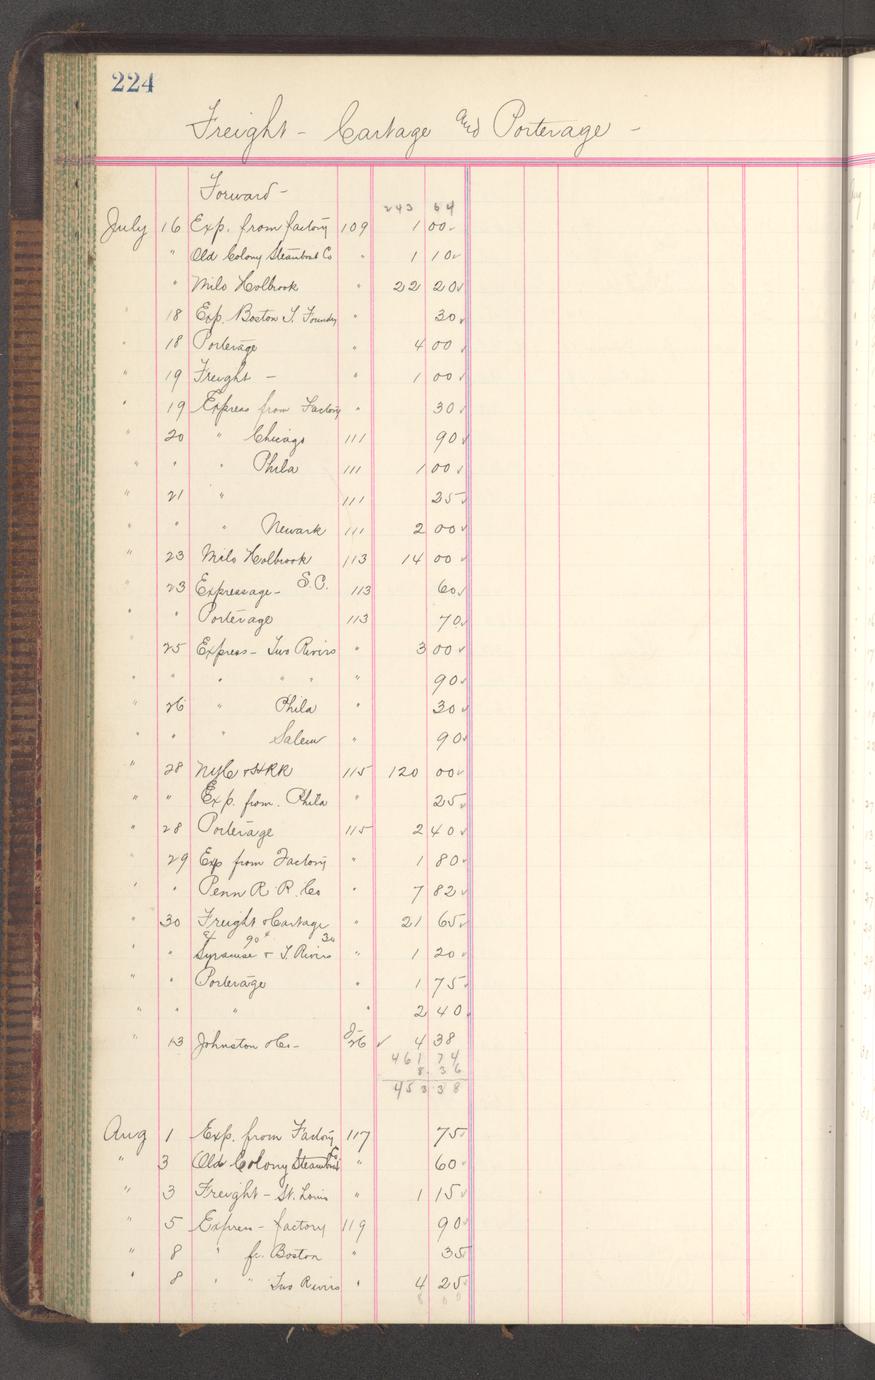 224
Freight - Cartage and Porterage -
Forward - 243 64
July 16 Exp. from factory 109 1 00
" Old Colony Steamboat Co " 1 10
" Milo Holbrook " 22 20
" 18 Exp. Boston T. Foundry " 30
" 18 Porterage " 4 00
" 19 Freight - " 1 00
" 19 Express from Factory " 30
" 20 " Chicago 111 90
" " " Phila 111 1 00
" 21 " 111 25
" " " Newark 111 2 00
" 23 Milo Holbrook 113 14 00
" 23 Expressage - S.C. 113 60
" " Porterage 113 70
" 25 Express - Two Rivers " 3 00
" " " " " " 90
" 26 " Phila " 30
" " " Salem " 90
" 28 NYC & HRR 115 120 00
" " Exp. from. Phila " 25
" 28 Porterage 115 2 40
" 29 Exp from Factory " 1 80
" " Penn R. R. Co " 7 82
" 30 Freight & Cartage " 21 65
90 30
" " Syracuse & T. Rivers " 1 20
" " Porterage " 1 75
" " " " 2 40
" 13 Johnston & Co - 26 4 38
461 74
8 36
453 38
Aug 1 Exp. from Factory 117 75
" 3 Old Colony Steamboat Co " 60
" 3 Freight - St. Louis " 1 15
" 5 Express - factory 119 90
" 8 " fr. Boston " 35
" 8 " " Two Rivers " 4 25